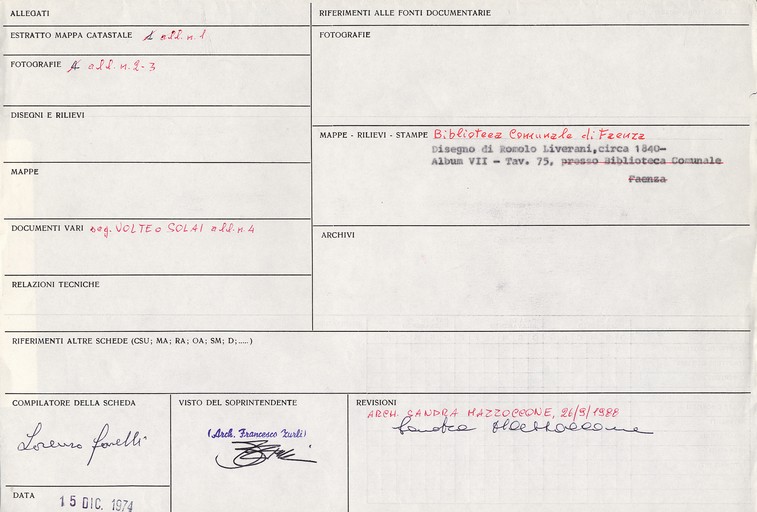 ALLEGATI
ESTRATTO MAPPA CATASTALE 1 all. n. 1
FOTOGRAFIE all. n. 2-3
DISEGNI E RILIEVI
MAPPE
DOCUMENTI VARI seg. VOLTE o SOLAI all. n. 4
RELAZIONI TECNICHE
RIFERIMENTI ALLE FONTI DOCUMENTARIE
FOTOGRAFIE
MAPPE - RILIEVI - STAMPE Biblioteca Comunale di Faenza
Disegno di Romolo Liverani,circa 1840-
Album VII - Tav. 75, presso Biblioteca Comunale
Faenza
ARCHIVI
RIFERIMENTI ALTRE SCHEDE (CSU; MA; RA; OA; SM; D;.....)
COMPILATORE DELLA SCHEDA
Lorenzo
DATA
15 DIC. 1974
VISTO DEL SOPRINTENDENTE
(Arch. Francesco Zurli)
REVISIONI
ARCH. SANDRA MAZZOCCONE, 26/9/1988